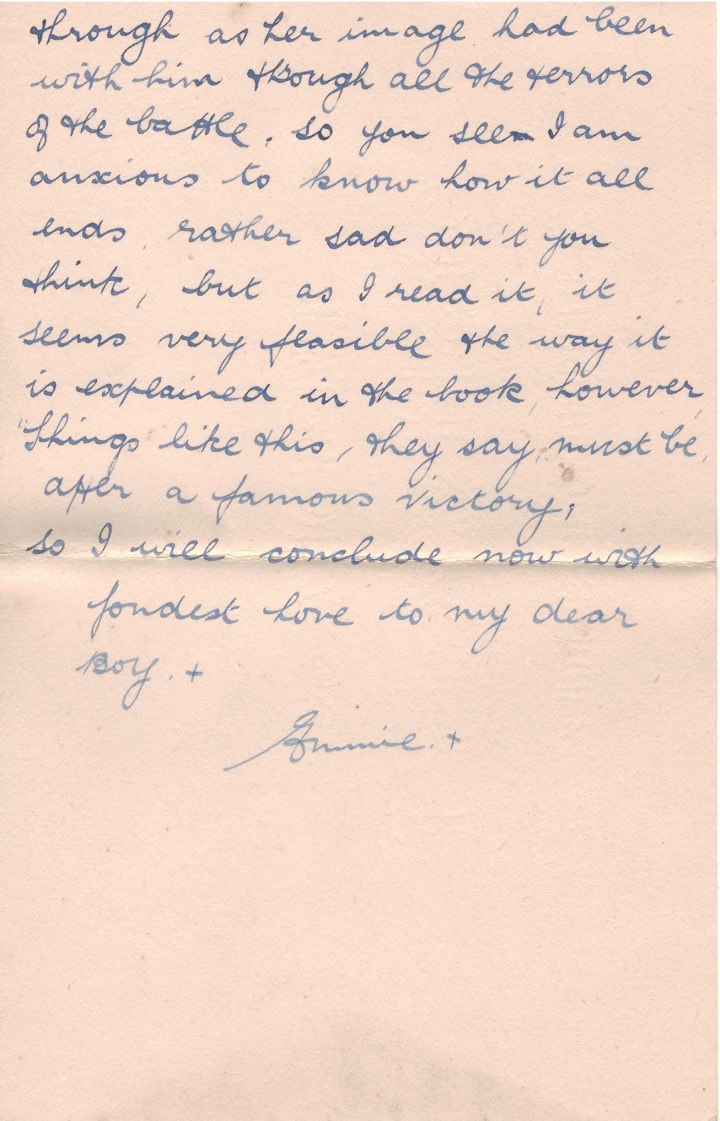 through as her image had been
with him through all the terrors
of the battle, so you see I am
anxious to know how it all
ends, rather sad don't you
think, but as I read it, it
seems very feasible the way it
is explained in the book, however,
"things like this, they say, must be,
after a famous victory,
so I will conclude now with
fondest love to my dear
Boy. +
+